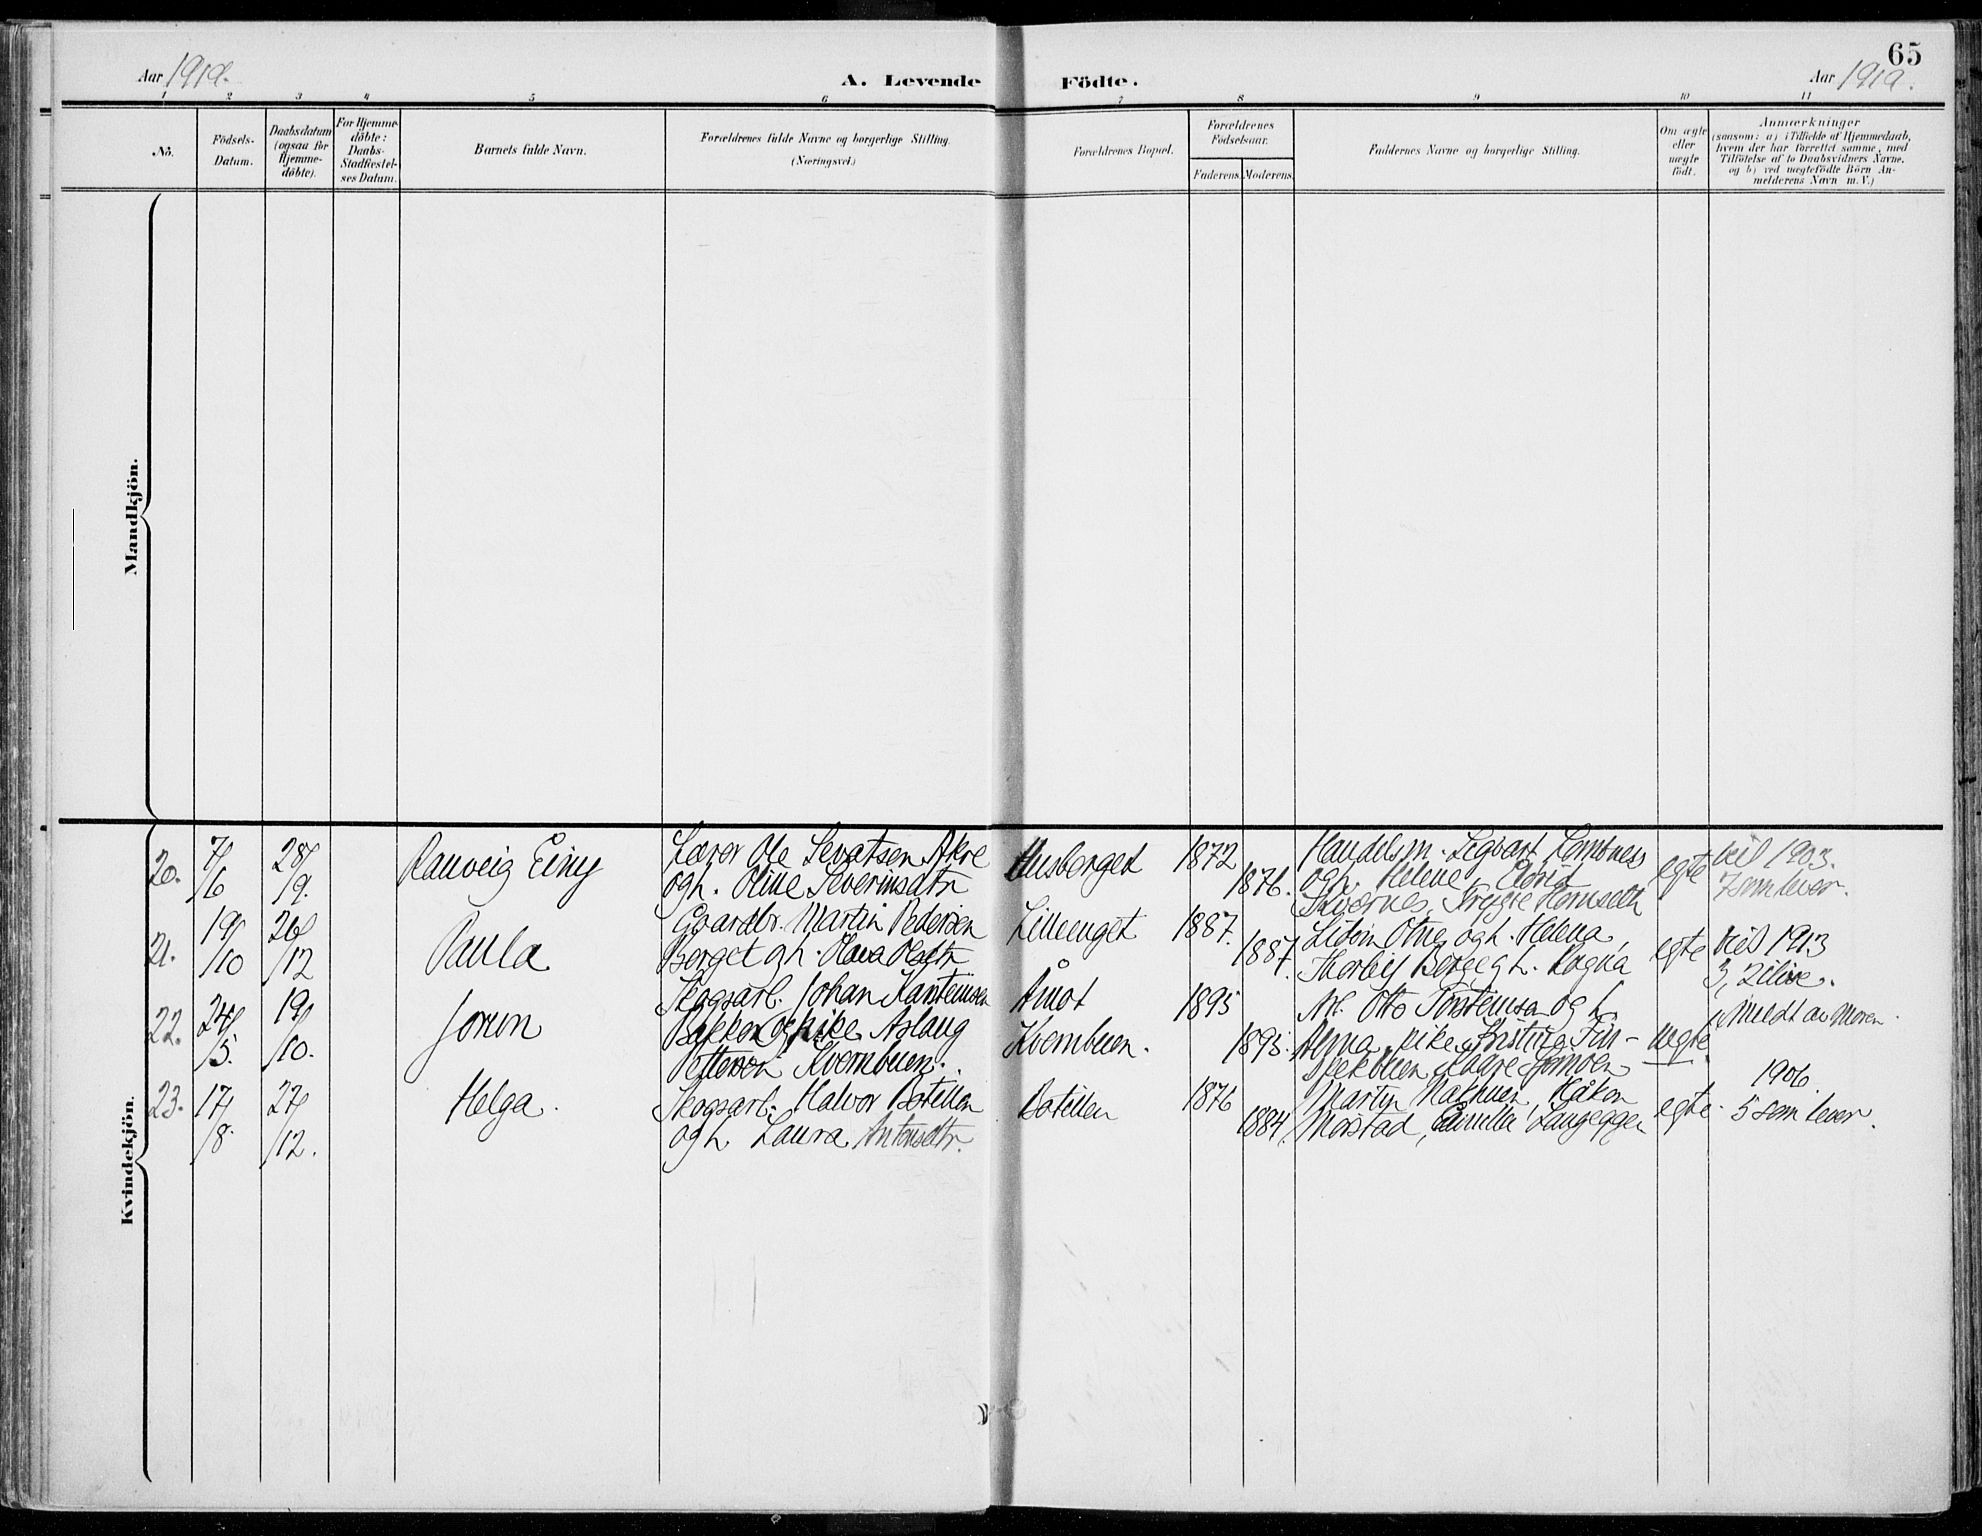 65
Aar 1919.
A. Levende Födte.
Aar 1919.
1 2 3 4 5 6 7 8 9 10 11
No.
Födsels-
Datum.
Daabsdatum
(ogsaa for
Hjemme-
döbte).
For Hjemme-
döbte:
Daabs-
Stadfæstel-
ses Datum.
Barnets fulde Navn.
Forældrenes fulde Navne og borgerlige Stilling.
(Næringsvei.)
Forældrenes Bopæl.
Forældrenes
Födselsaar.
Faderens. Moderens.
Faddernes Navne og borgerlige Stilling.
Om ægte
eller
uægte
födt.
Anmærkninger
(saasom: a) i Tilfælde af Hjemmedaab,
hvem der har forrettet samme, med
Tilföielse af to Daabsvidners Navne.
og b) ved uægtefödte Börn An-
melderens Navn m. V.)
Mandkjön.
Kvindekjön.
20.
7/6
28/9.
Ranveig Einy
Lærer Ole Sevatsen Akre
ogh. Oline Severinsdtr
Husberget
1872
1876.
Handelsm. Sigvart
ogh. Helene,
Trygve
egte
viet 1903.
7 som lever.
21.
19/10
26/12
Paula
Gaardbr. Martin Pedersen
Berget gh. Olava Olsdtr
Lilleenget
1887.
1887.
Otne og h. Helena,
Thorleif Berget h. Ragna
egte
viet 1913
3, 2 i live.
22.
24/5.
19/10.
Jorun
Skogsarb. Johan
Bakken og pike Aslaug
Kvernbuen.
Åmot
Kvernbuen.
1895
1893.
Arb. Otto Torstensen og h.
Anna, pike Kristine Fin-
uegte
Meldt av Moren.
23.
17/8.
27/12.
Helga.
Skogsarb. Halvor Botillen
ogh Laura Antonsdtr.
Botillen
1876
1884.
Martin Håkon
Morstad,
egte.
1906.
5 som lever.